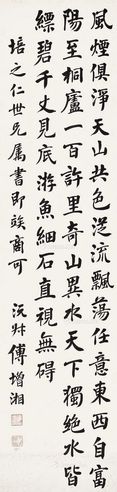 風煙俱淨天山共色從流飄蕩任意東西自富
陽至桐廬一百許里奇山異水天下獨絕水皆
縹碧千丈見底游魚細石直視無礙
培之仁世兄屬書即竢商可
沅叔傅增湘